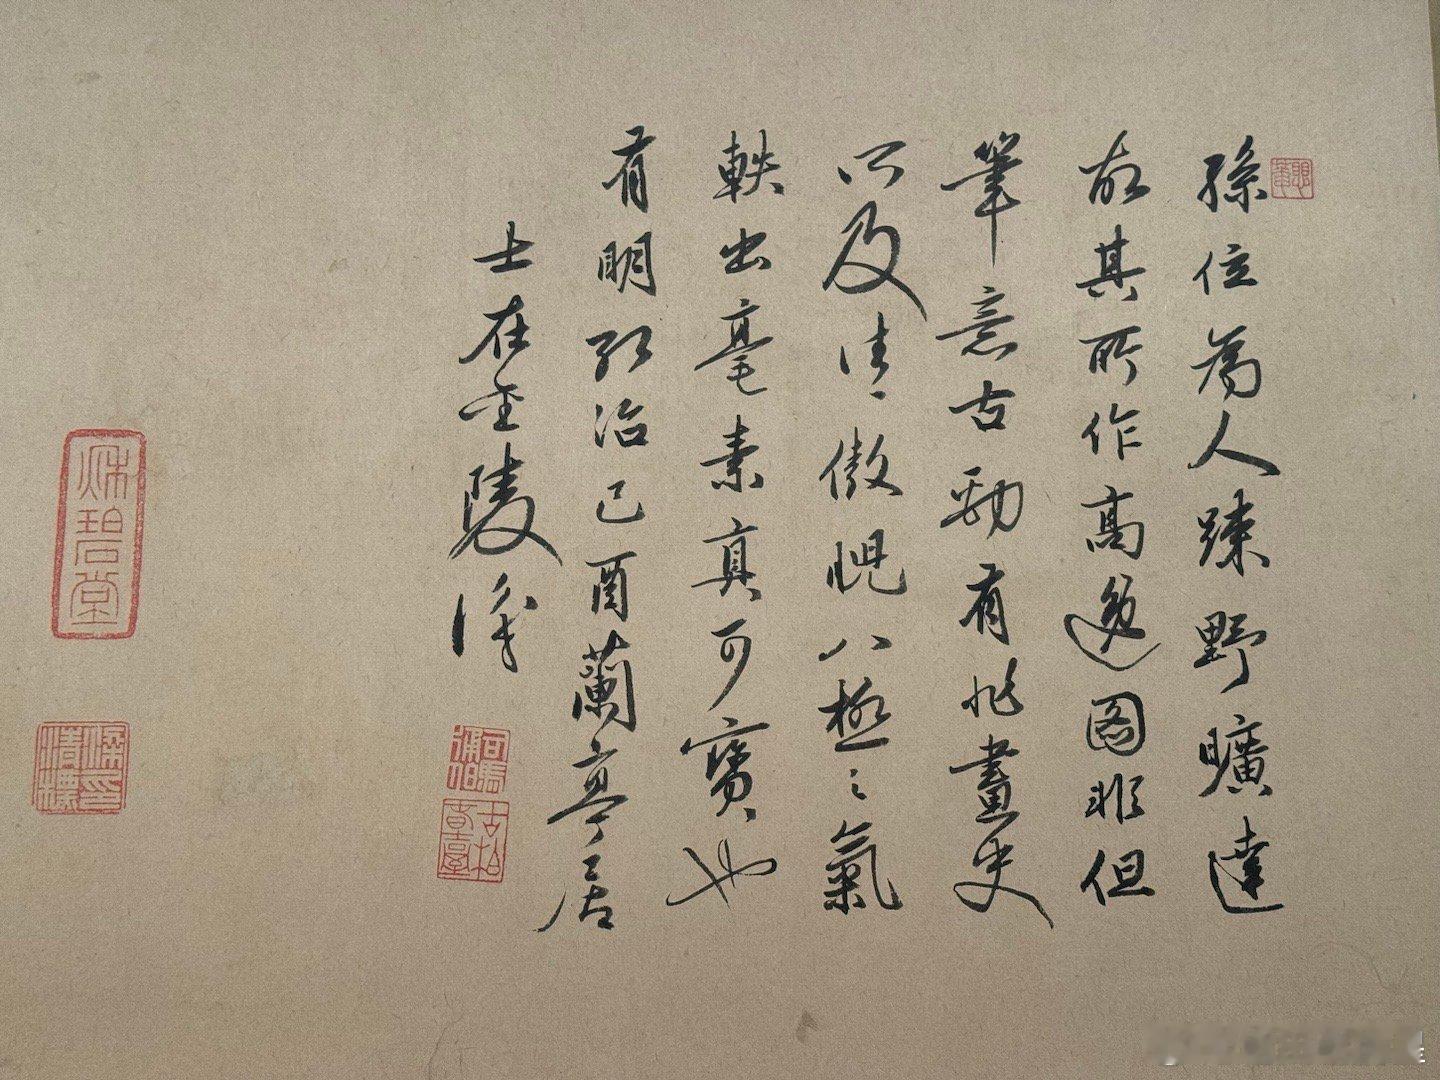 孫位為人踈野曠達
故其所作高逸圖非但
筆意古勁有非畫史
所及往〻傲睨八極之氣
軼出毫素真可寶也
有明弘治己酉蘭亭居
士在金陵識
秌碧堂